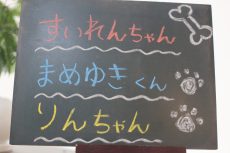 すいれんちゃん
まめゆきくん
りんちゃん